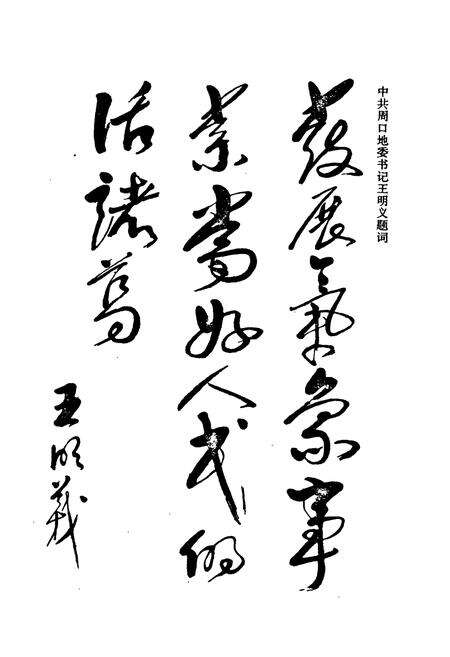 中共周口地委书记王明义题词
發展氣象事
業當好人民的
活諸葛
王明義